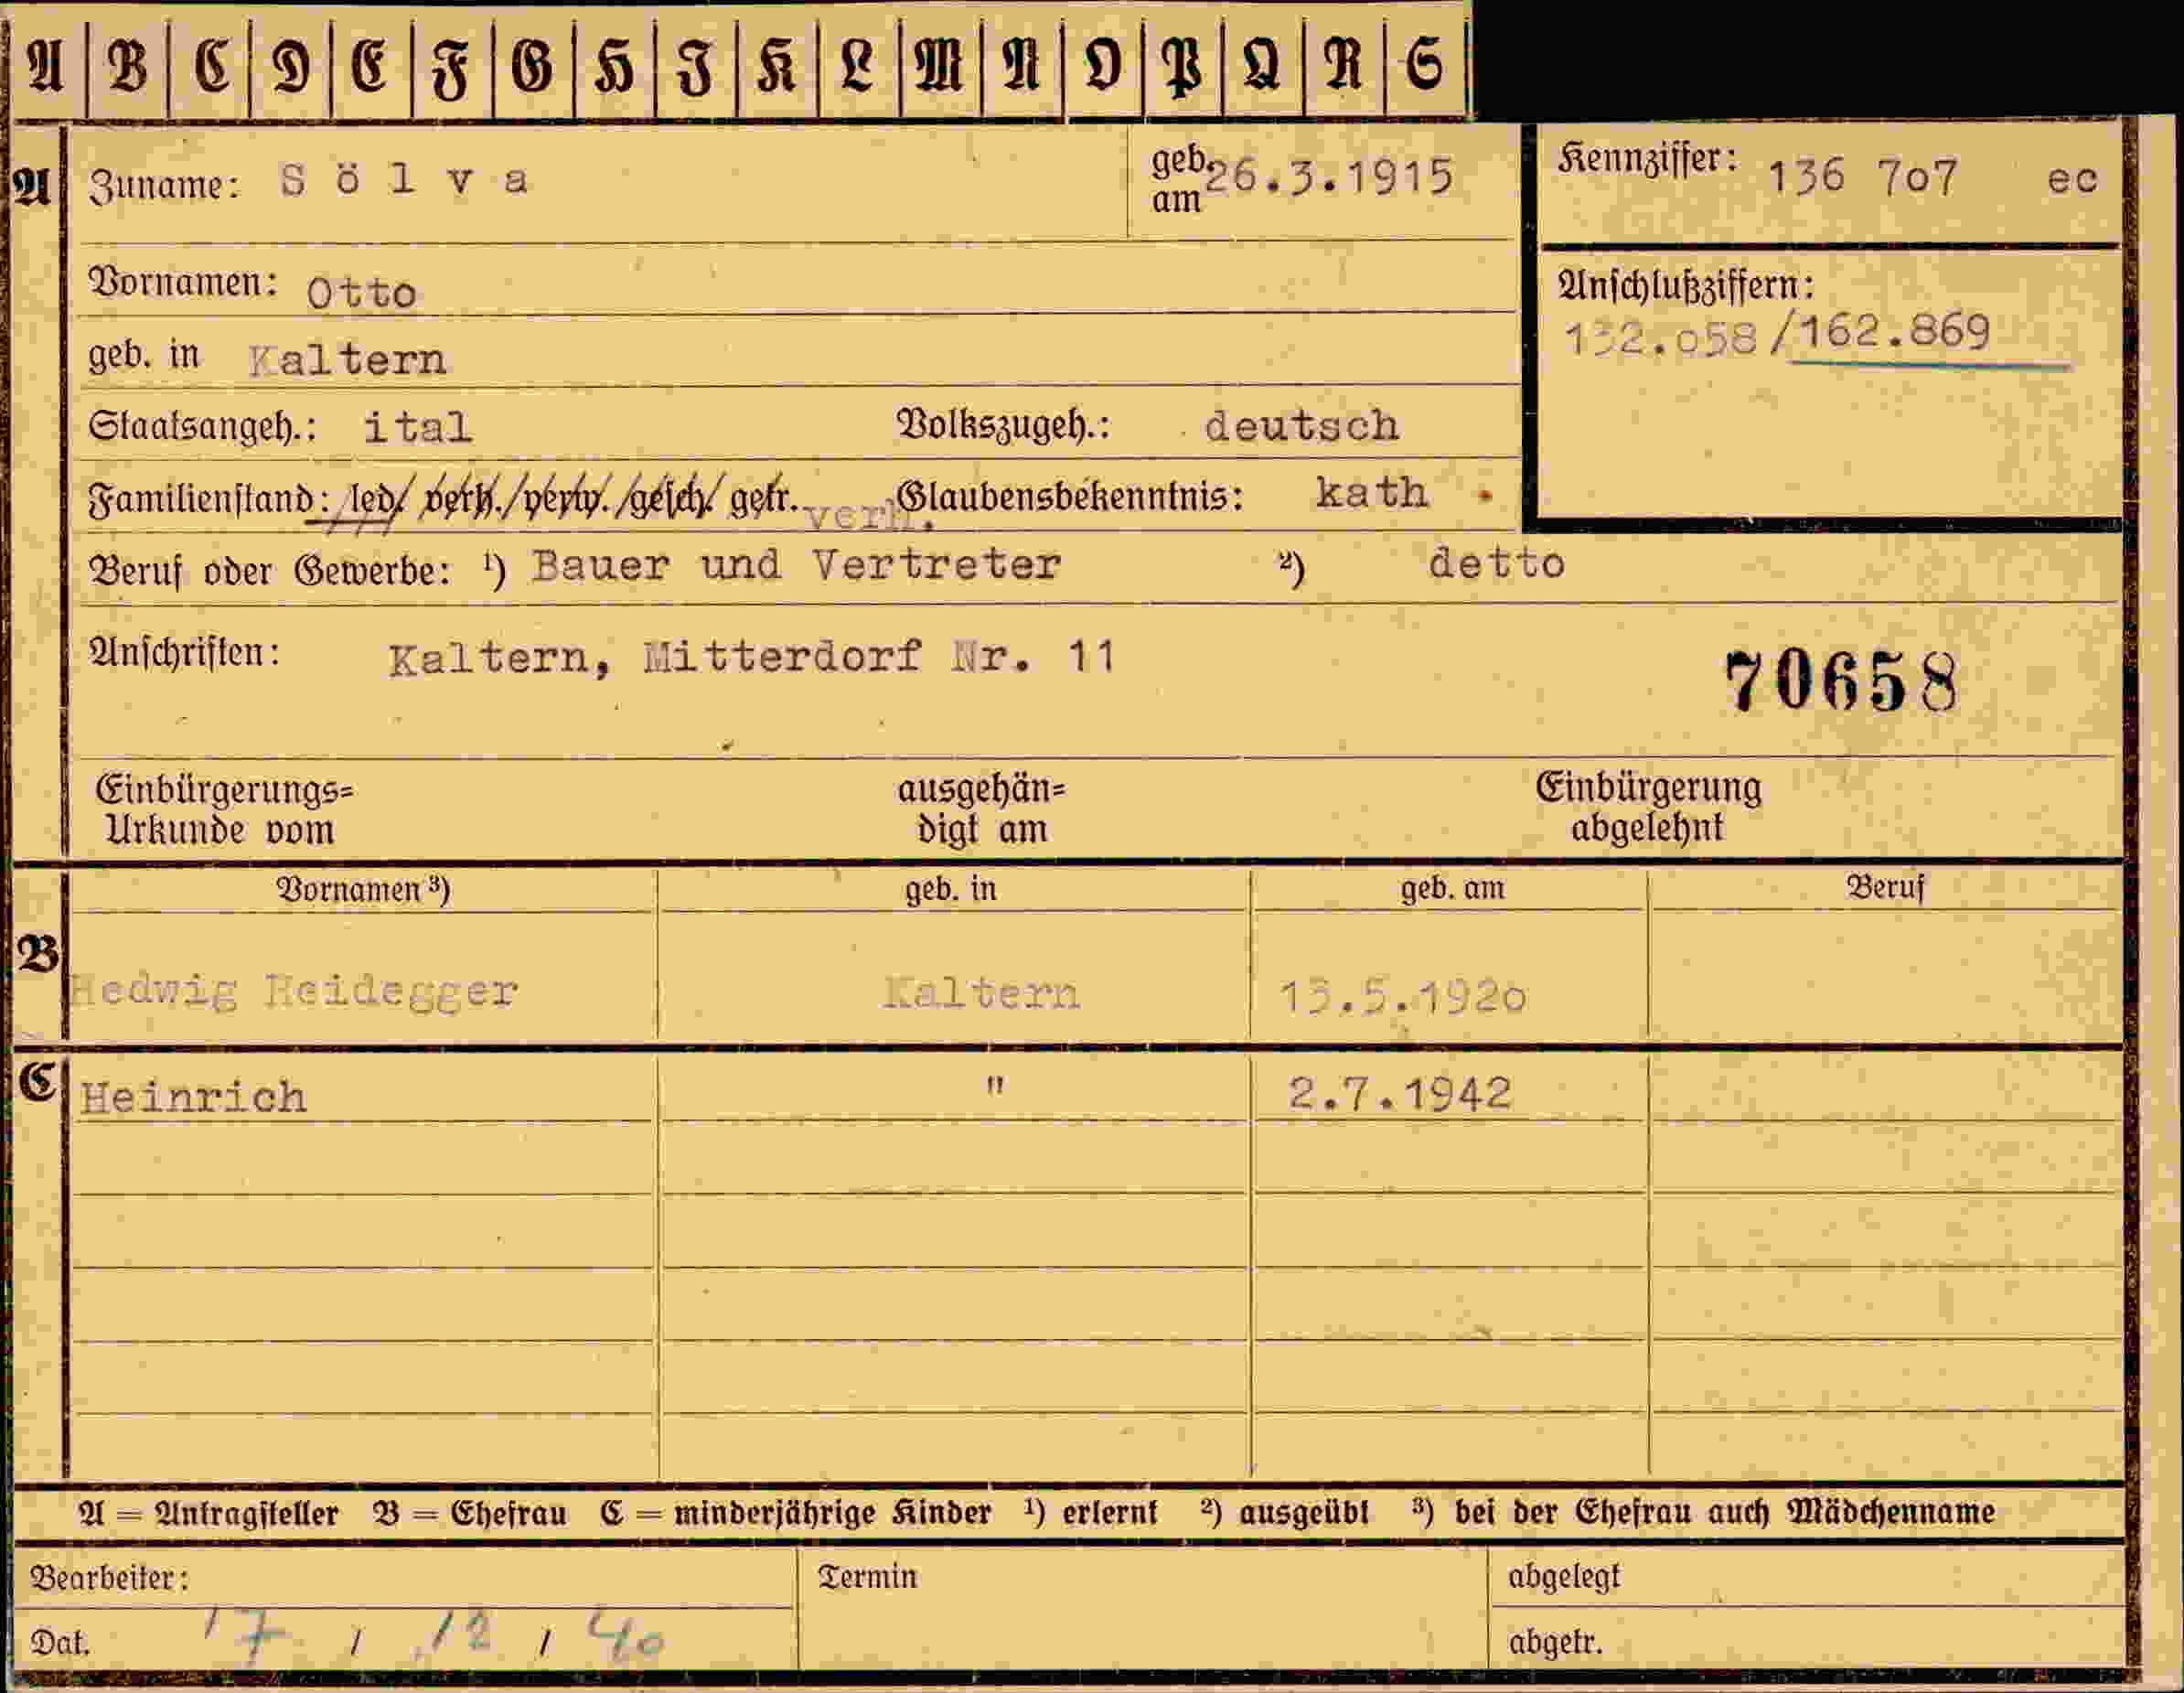 A B C D E F G H I K L M N O P Q R S
A Zuname: Sölva geb. am 26.3.1915 Kennziffer: 136 7o7 ec
Vornamen: Otto Anschlußziffern:
geb. in Kaltern 132.o58/162.869
Staatsangeh.: ital Volkszugeh.: deutsch
Familienstand: led/ verh./verw./gesch/ getr. verh. Glaubensbekenntnis: kath
Beruf oder Gewerbe: ¹) Bauer und Vertreter ²) detto
Anschriften: Kaltern, Mitterdorf Nr. 11 70658
Einbürgerungs= ausgehän= Einbürgerung
Urkunde vom digt am abgelehnt
Vornamen ³) geb. in geb. am Beruf
B Hedwig Heidegger Kaltern 13.5.192o
C Heinrich " 2.7.1942
A = Antragsteller B = Ehefrau C = minderjährige Kinder ¹) erlernt ²) ausgeübt ³) bei der Ehefrau auch Mädchenname
Bearbeiter: Termin abgelegt
Dat. 17 / 12 / 40 abgetr.